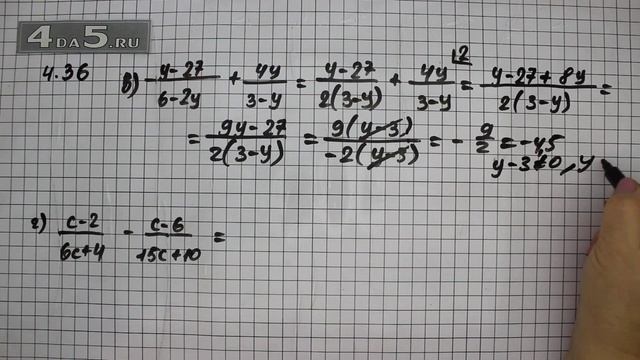 4DA5.RU
4.36 в) \frac{y-27}{6-2y} + \frac{4y}{3-y} = \frac{y-27}{2(3-y)} + \frac{4y}{3-y}^{2} = \frac{y-27+8y}{2(3-y)} =
= \frac{9y-27}{2(3-y)} = \frac{9(y-3)}{-2(y-3)} = -\frac{9}{2} = -4,5
y-3≠0, y
г) \frac{c-2}{6c+4} - \frac{c-6}{15c+10} =